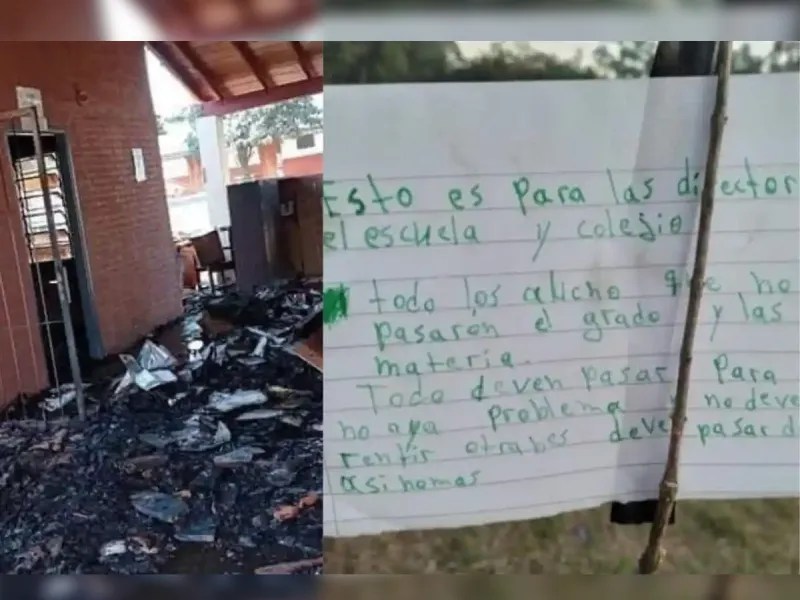 Esto es para las director
el escuela y colejio
todo los alicho que no
pasaron el grado y las
materia.
Todo deven pasar para
no aya problema y no deve
rentir otrabes deve pasar d
asi nomas